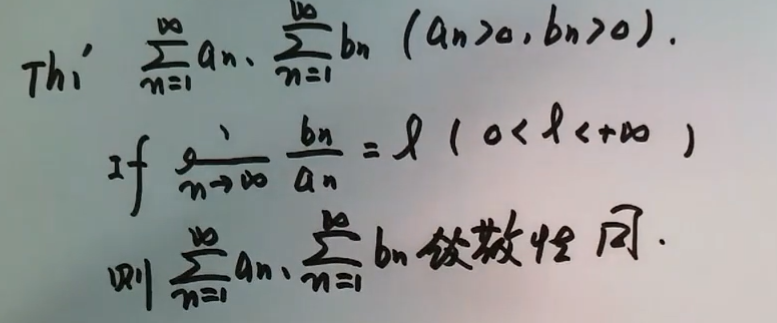 Th1' ∑_{n=1}^{∞} a_n、∑_{n=1}^{∞} b_n (a_n>0, b_n>0).
If lim_{n→∞} b_n/a_n = l (0<l<+∞)
则 ∑_{n=1}^{∞} a_n、∑_{n=1}^{∞} b_n 敛散性同.